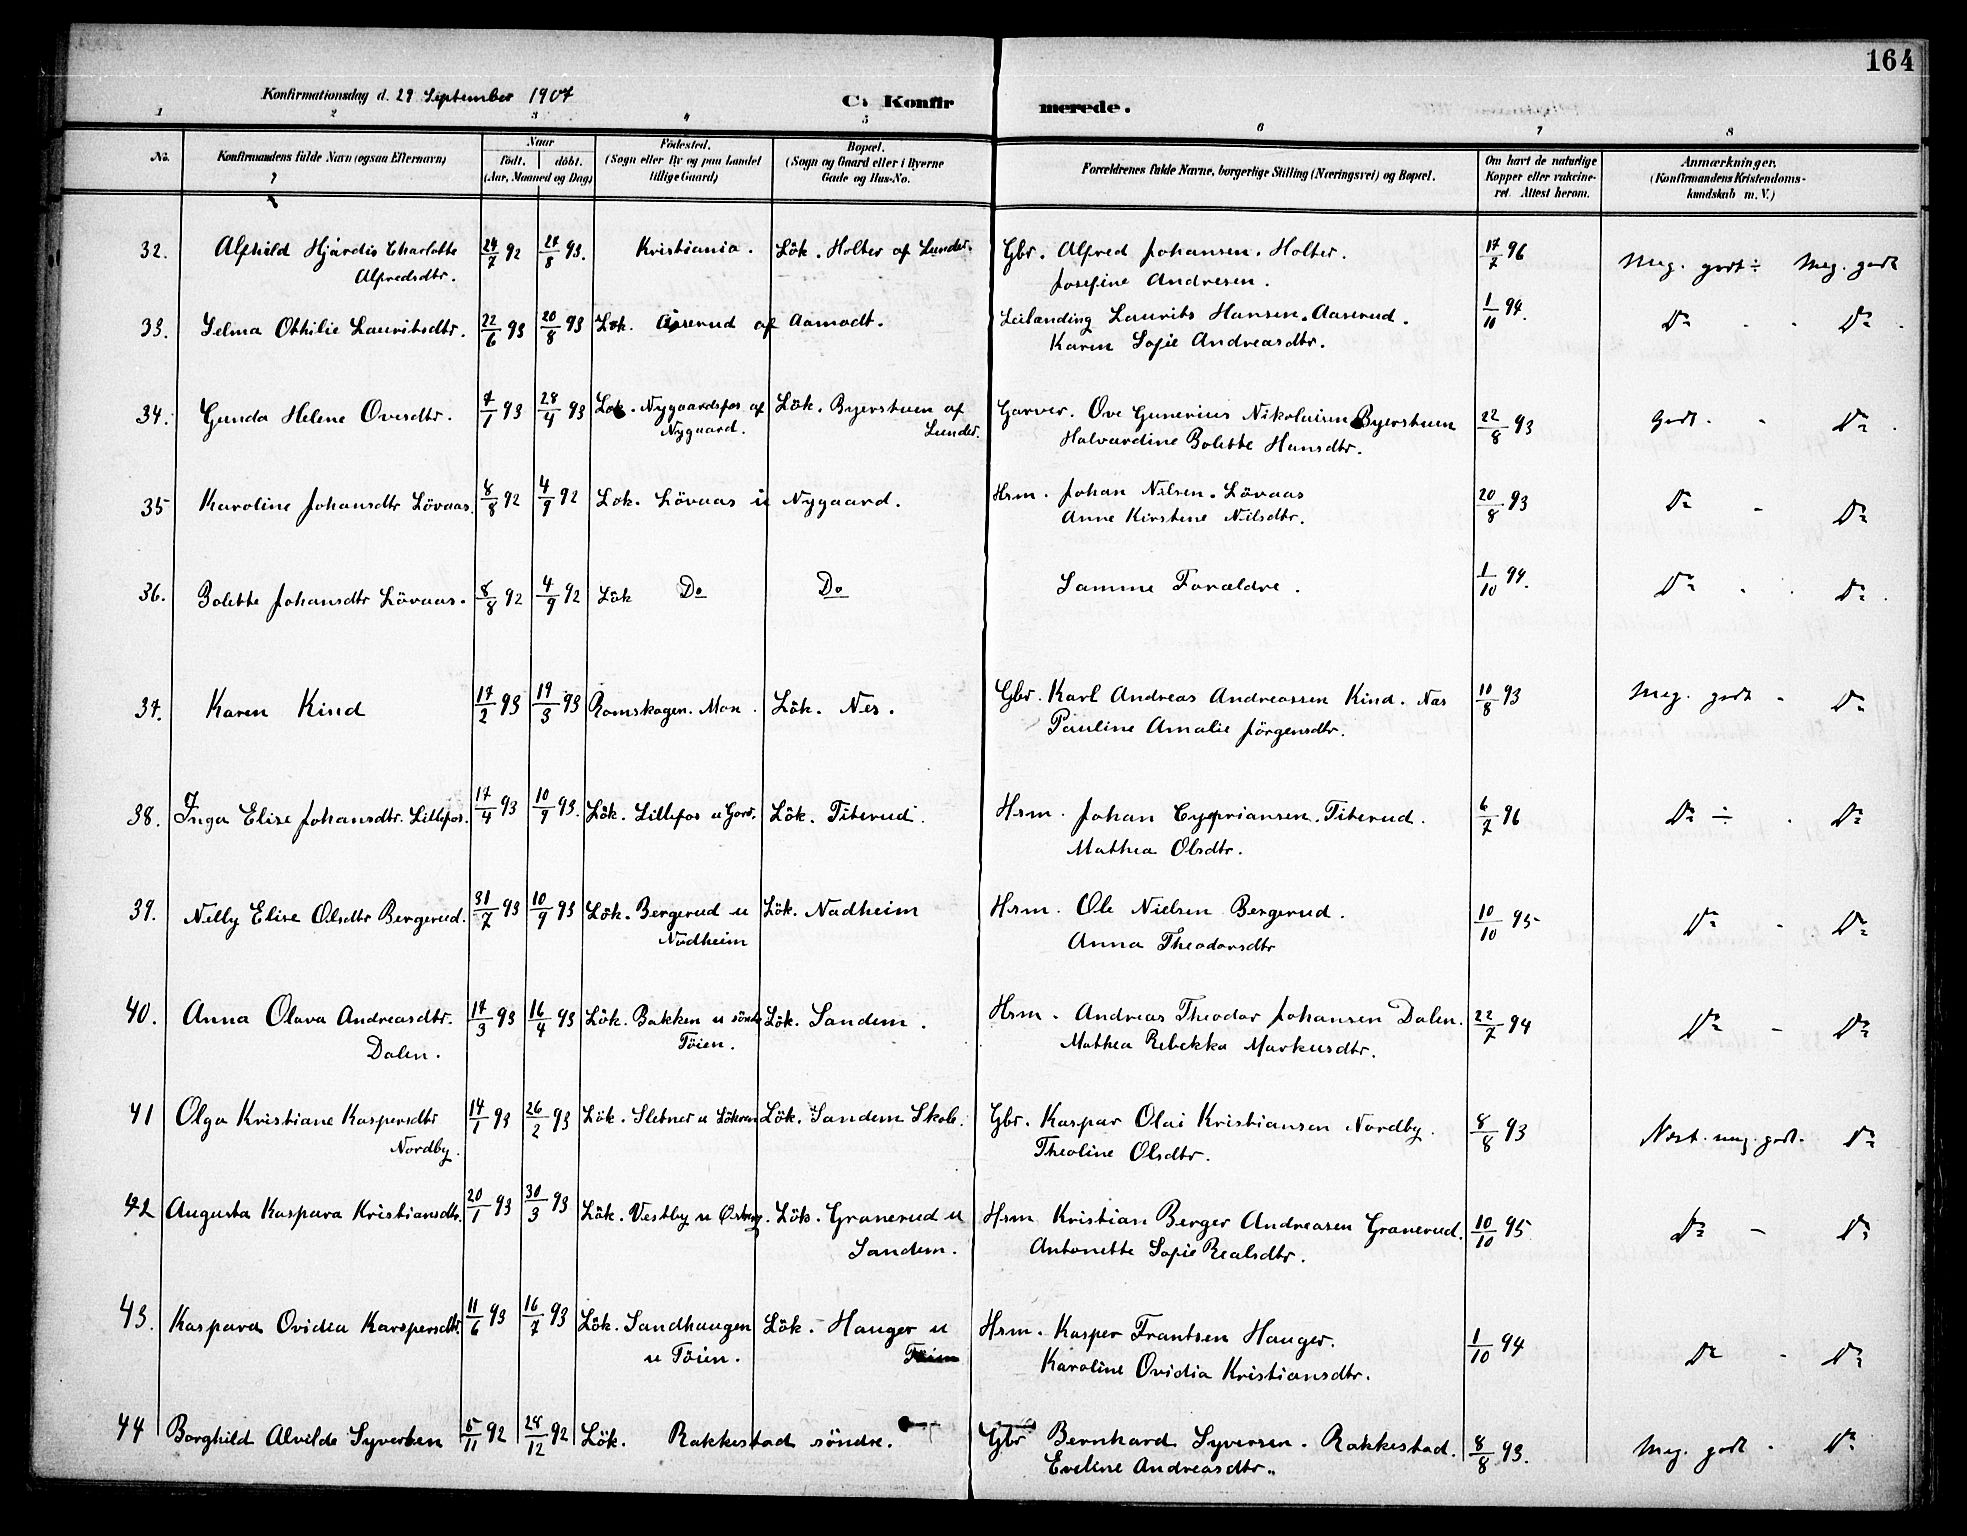 164
Konfirmationsdag d. 29 September 1907
C. Konfirmerede.
1 2 3 4 5 6 7 8
No. Konfirmandens fulde Navn (ogsaa Efternavn) Naar født. døbt. (Aar, Maaned og Dag) Fødested. (Sogn eller By og paa Landet tillige Gaard) Bopæl. (Sogn og Gaard eller i Byerne Gade og Hus-No. Forældrenes fulde Navne, borgerlige Stilling (Næringsvei) og Bopæl. Om havt de naturlige Kopper eller vakcineret. Attest herom. Anmærkninger. (Konfirmandens Kristendomskundskab m. V.)
32. Alfhild Hjördis Charlotte 24/7 92 27/8 93. Kristiania. Lök. Holter af Lunder. Gbr. Alfred Johansen. Holter. 17/7 96 Meg. godt ÷ Meg. godt
Alfredsdtr. Josefine Andresen.
33. Selma Othilie Lauritsdtr. 22/6 93 20/8 93 Lök. Aaserud af Aamodt. Leilending Laurits Hansen. Aaserud. 1/10 94. Do Do
Karen Sofie Andreasdtr.
34. Gunda Helene Ovesdtr. 7/1 93 28/4 93 Lök. Nygaardsfos af Lök. Byerstuen af Garver. Ove Gunerius Nikolaisen Byerstuen 22/8 93 Godt. - Do
Nygaard. Lunder. Halvardine Bolette Hansdtr.
35 Karoline Johansdtr Lövaas. 8/8 92 4/9 92 Lök. Lövaas u Nygaard. Hsm. Johan Nilsen. Lövaas 20/8 93 Do - Do
Anne Kirstine Nilsdtr.
36. Bolette Johansdtr Lövaas. 8/8 92 4/9 92 Lök Do Do Samme Forældre. 1/10 94. Do Do
37. Karen Kind 17/2 93 19/3 93 Romskogen. Mon. Lök. Nes. Gbr. Karl Andreas Andreassen Kind. Nes 10/8 93 Meg. godt - Do
Pauline Amalie Jörgensdtr.
38. Inga Elise Johansdtr. Lillefos. 17/4 93 10/9 93. Lök. Lillefos u Gord. Lök. Titerud. Hsm. Johan Cyprianssen. Titerud. 6/7 96 Do ÷ Do
Mathea Olsdtr.
39. Nelly Elise Olsdtr Bergerud. 31/7 93 10/9 93 Lök. Bergerud u Lök. Nadheim Hsm. Ole Nielsen Bergerud. 10/10 95 Do - Do
Nadheim Anna Theodorsdtr
40. Anna Olava Andreasdtr. 17/3 93 16/4 93 Lök. Bakken u söndr Lök. Sandem. Hsm. Andreas Theodor Johansen Dalen. 22/7 94 Do - Do
Dalen. Töien. Mathea Rebekka Markusdtr.
41 Olga Kristiane Kaspersdtr 14/1 93 26/2 93 Lök. Sletner u Lökren Lök. Sandem Skole. Gbr. Kaspar Olai Kristiansen Nordby. 8/8 93 Næst. meg. godt. Do
Nordby. Theoline Olsdtr.
42 Augusta Kaspara Kristiansdtr. 20/1 93 30/3 93 Lök. Vestby u Östby. Lök. Granerud u Hsm Kristian Berger Andreasen Granerud. 10/10 95 Do - Do
Sandem. Antonette Sofie Realsdtr.
43. Kaspara Ovidea Karspersdtr. 11/6 93 16/7 93 Lök. Sandhaugen Lök. Hauger u Hsm. Kasper Frantsen Hauger. 1/10 94 Do - Do
u Töien. Töien Karoline Ovidia Kristiansdtr.
44 Borghild Alvilde Syvertsen 5/11 92 28/12 92 Lök. Rakkestad söndre. Gbr Bernhard Syversen. Rakkestad. 8/8 93. Meg. godt - Do
Eveline Andreasdtr.